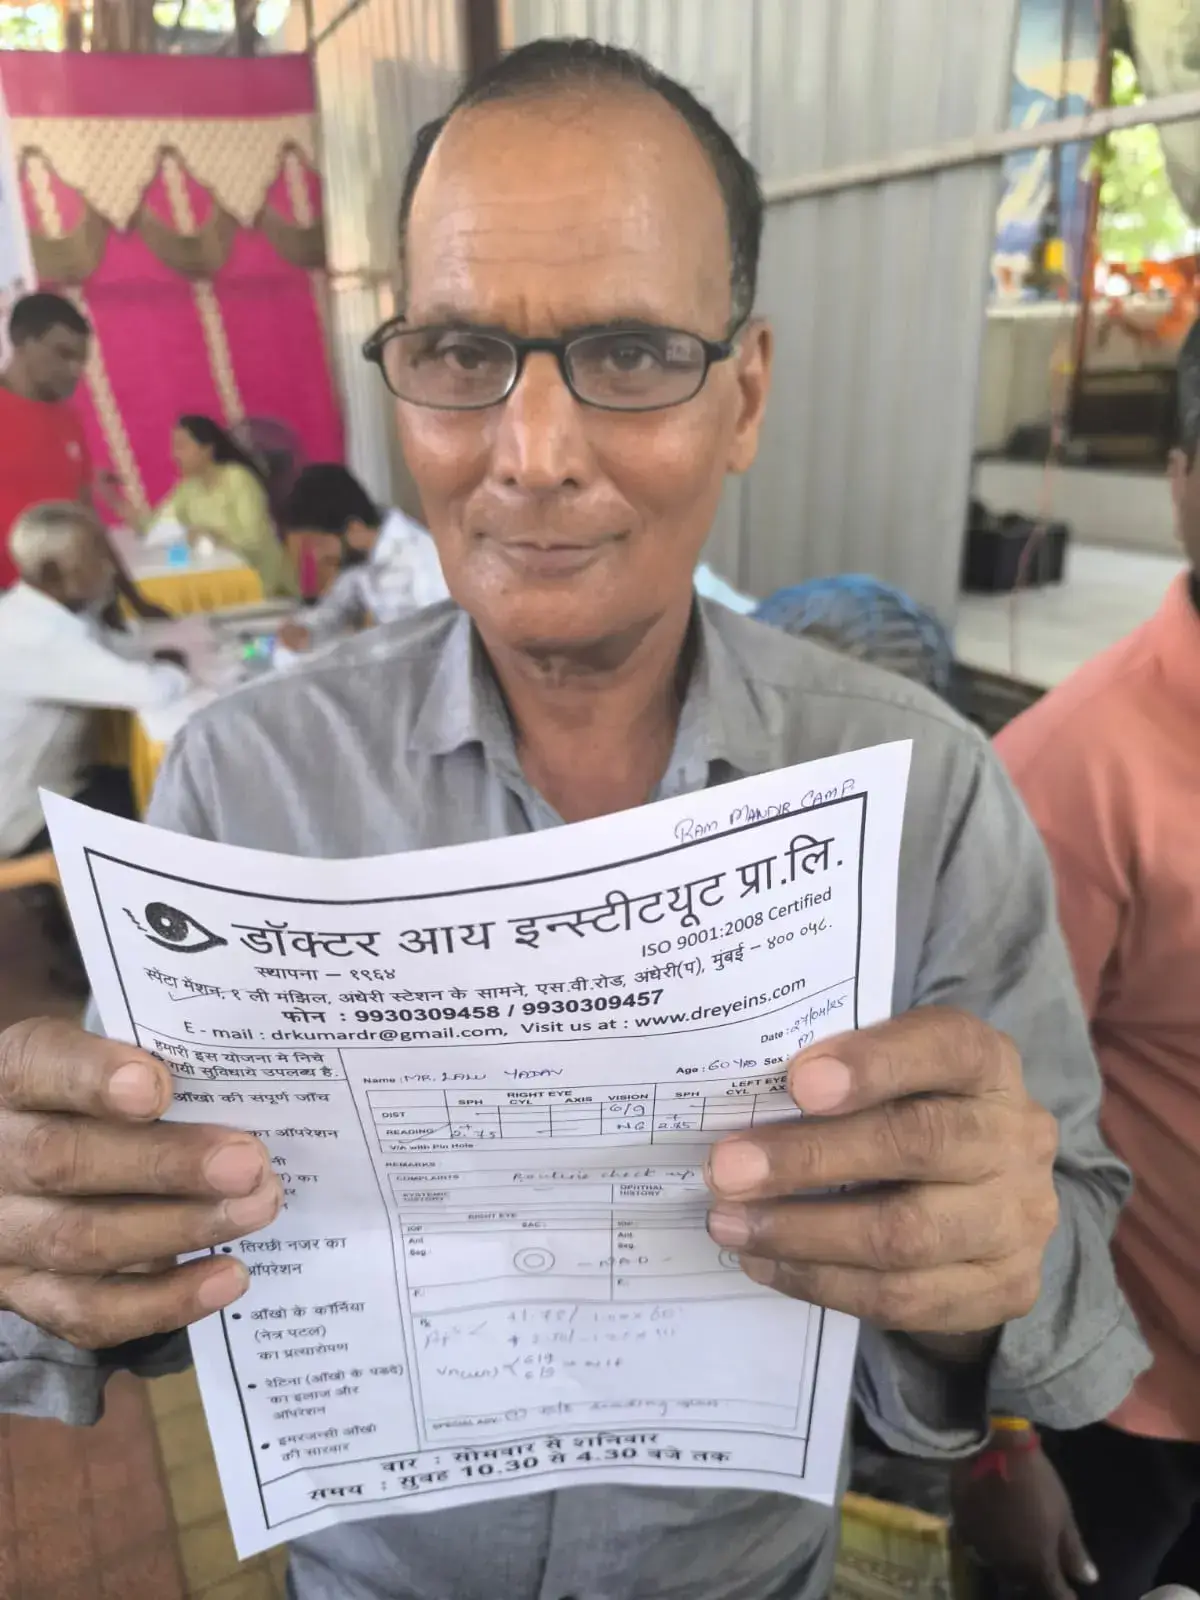 RAM MANDIR CAMP
डॉक्टर आय इन्स्टीटयूट प्रा.लि.
ISO 9001:2008 Certified
स्थापना – १९६४
स्पेंटा मेंशन, १ ली मंझिल, अंधेरी स्टेशन के सामने, एस.वी.रोड, अंधेरी(प), मुंबई – ४०० ०५८.
फोन : 9930309458 / 9930309457
E - mail : drkumardr@gmail.com, Visit us at : www.dreyeins.com
Date : 27/04/25
हमारी इस योजना मे निचे
गयी सुविधाये उपलब्ध है.
आँखो की संपूर्ण जाँच
का ऑपरेशन
का
तिरछी नजर का
ऑपरेशन
आँखो के कॉर्निया
(नेत्र पटल)
का प्रत्यारोपण
रेटिना (आँखो के पडदे)
का इलाज और
ऑपरेशन
इमरजन्सी आँखो
की सारवार
Name : MR. LALU YADAV Age : 60 YRS Sex : M
RIGHT EYE LEFT EYE
SPH CYL AXIS VISION SPH CYL AX
DIST 6/9
READING +2.75 N6 +2.75
V/A with Pin Hole
REMARKS :
COMPLAINTS Routine check up
SYSTEMIC HISTORY OPHTHAL HISTORY
RIGHT EYE
IOP SAC : IOP :
Ant Seg. Ant Seg.
NAD
F. F.
Rx
SPECIAL ADV. reading
वार : सोमवार से शनिवार
समय : सुबह 10.30 से 4.30 बजे तक